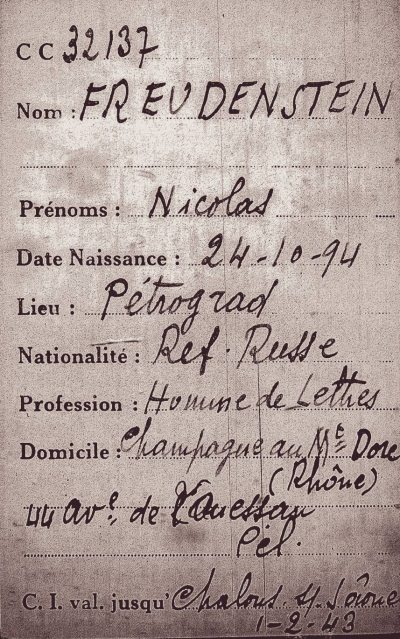 C C 32137
Nom : FREUDENSTEIN
Prénoms : Nicolas
Date Naissance : 24-10-94
Lieu : Pétrograd
Nationalité : Ref. Russe
Profession : Homme de Lettres
Domicile : Champagne au Mt Dore
(Rhône)
44 av. de
C. I. val. jusqu' Chalons s/ Saône
1-2-43